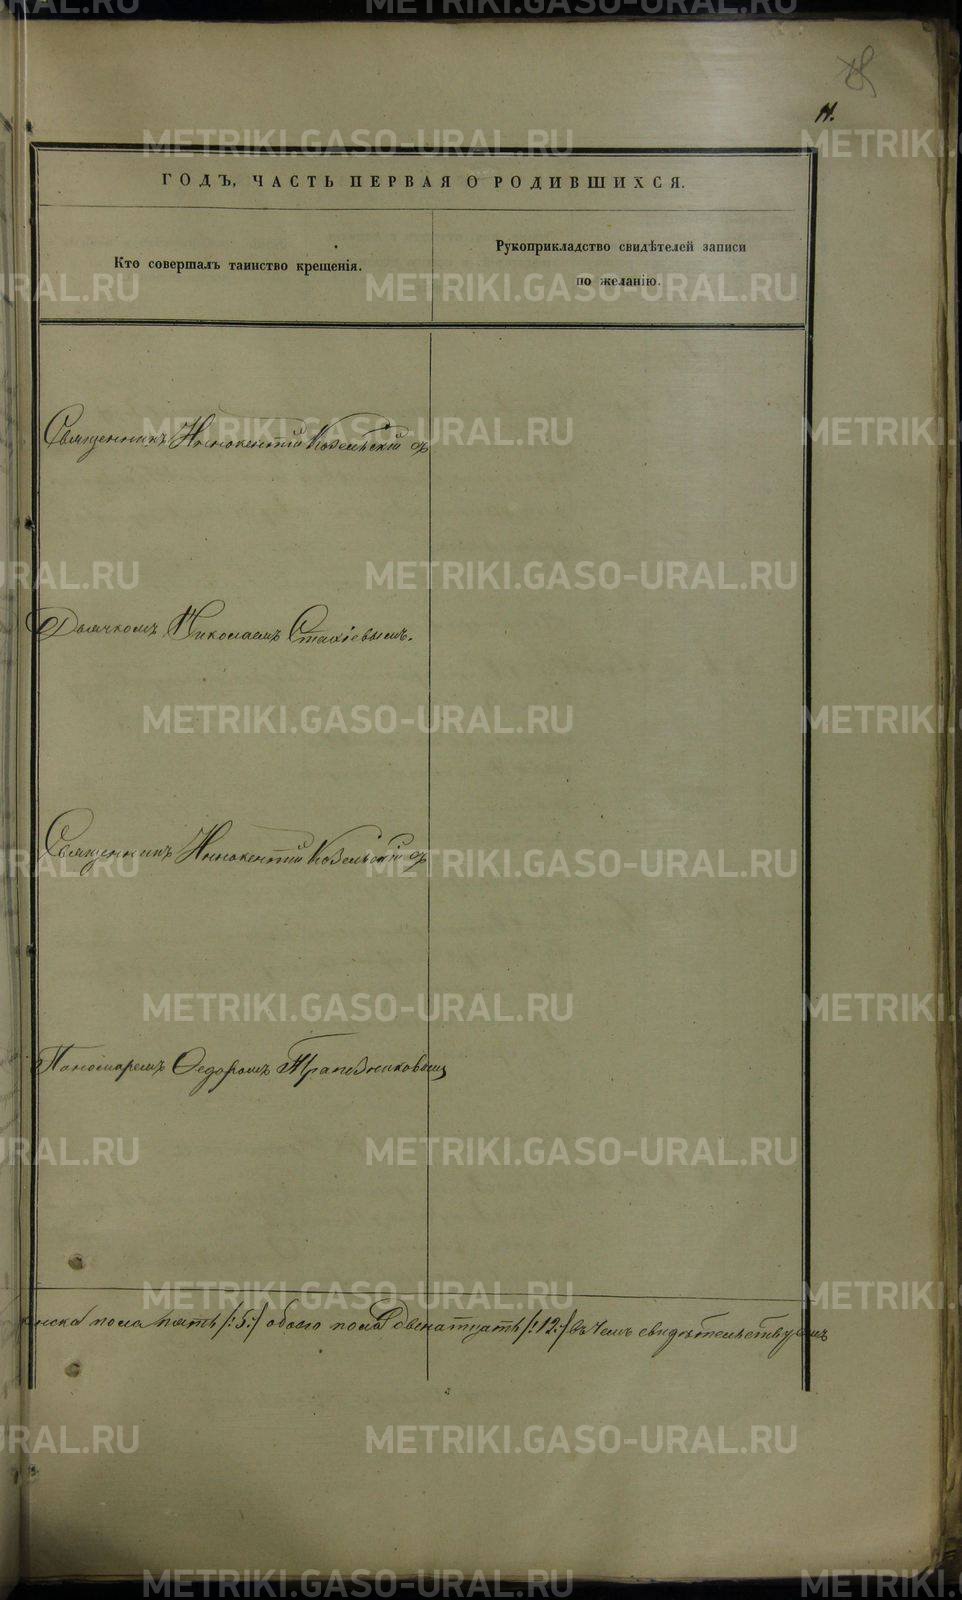 11.
ГОДЪ, ЧАСТЬ ПЕРВАЯ О РОДИВШИХСЯ.
Кто совершалъ таинство крещенія.
Рукоприкладство свидѣтелей записи
по желанію.
Священникъ Иннокентій Козельскій съ
Дьячкомъ Николаемъ Стахіевымъ.
Священникъ Иннокентій Козельскій съ
Пономаремъ Ѳедоромъ Трапезниковымъ
женска пола пять /:5:/ обоего пола двенатцать /:12:/ въ чемъ свидѣтельствуемъ
METRIKI.GASO-URAL.RU